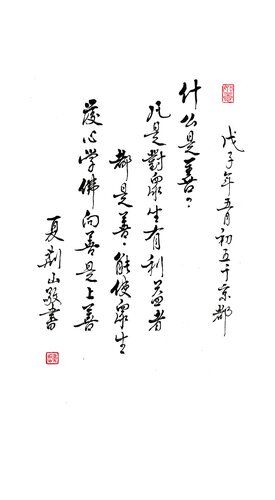 戊子年五月初五于京都
什么是善？
凡是對眾生有利益者
都是善，能使眾生
發心學佛向善是上善
夏荆山敬書